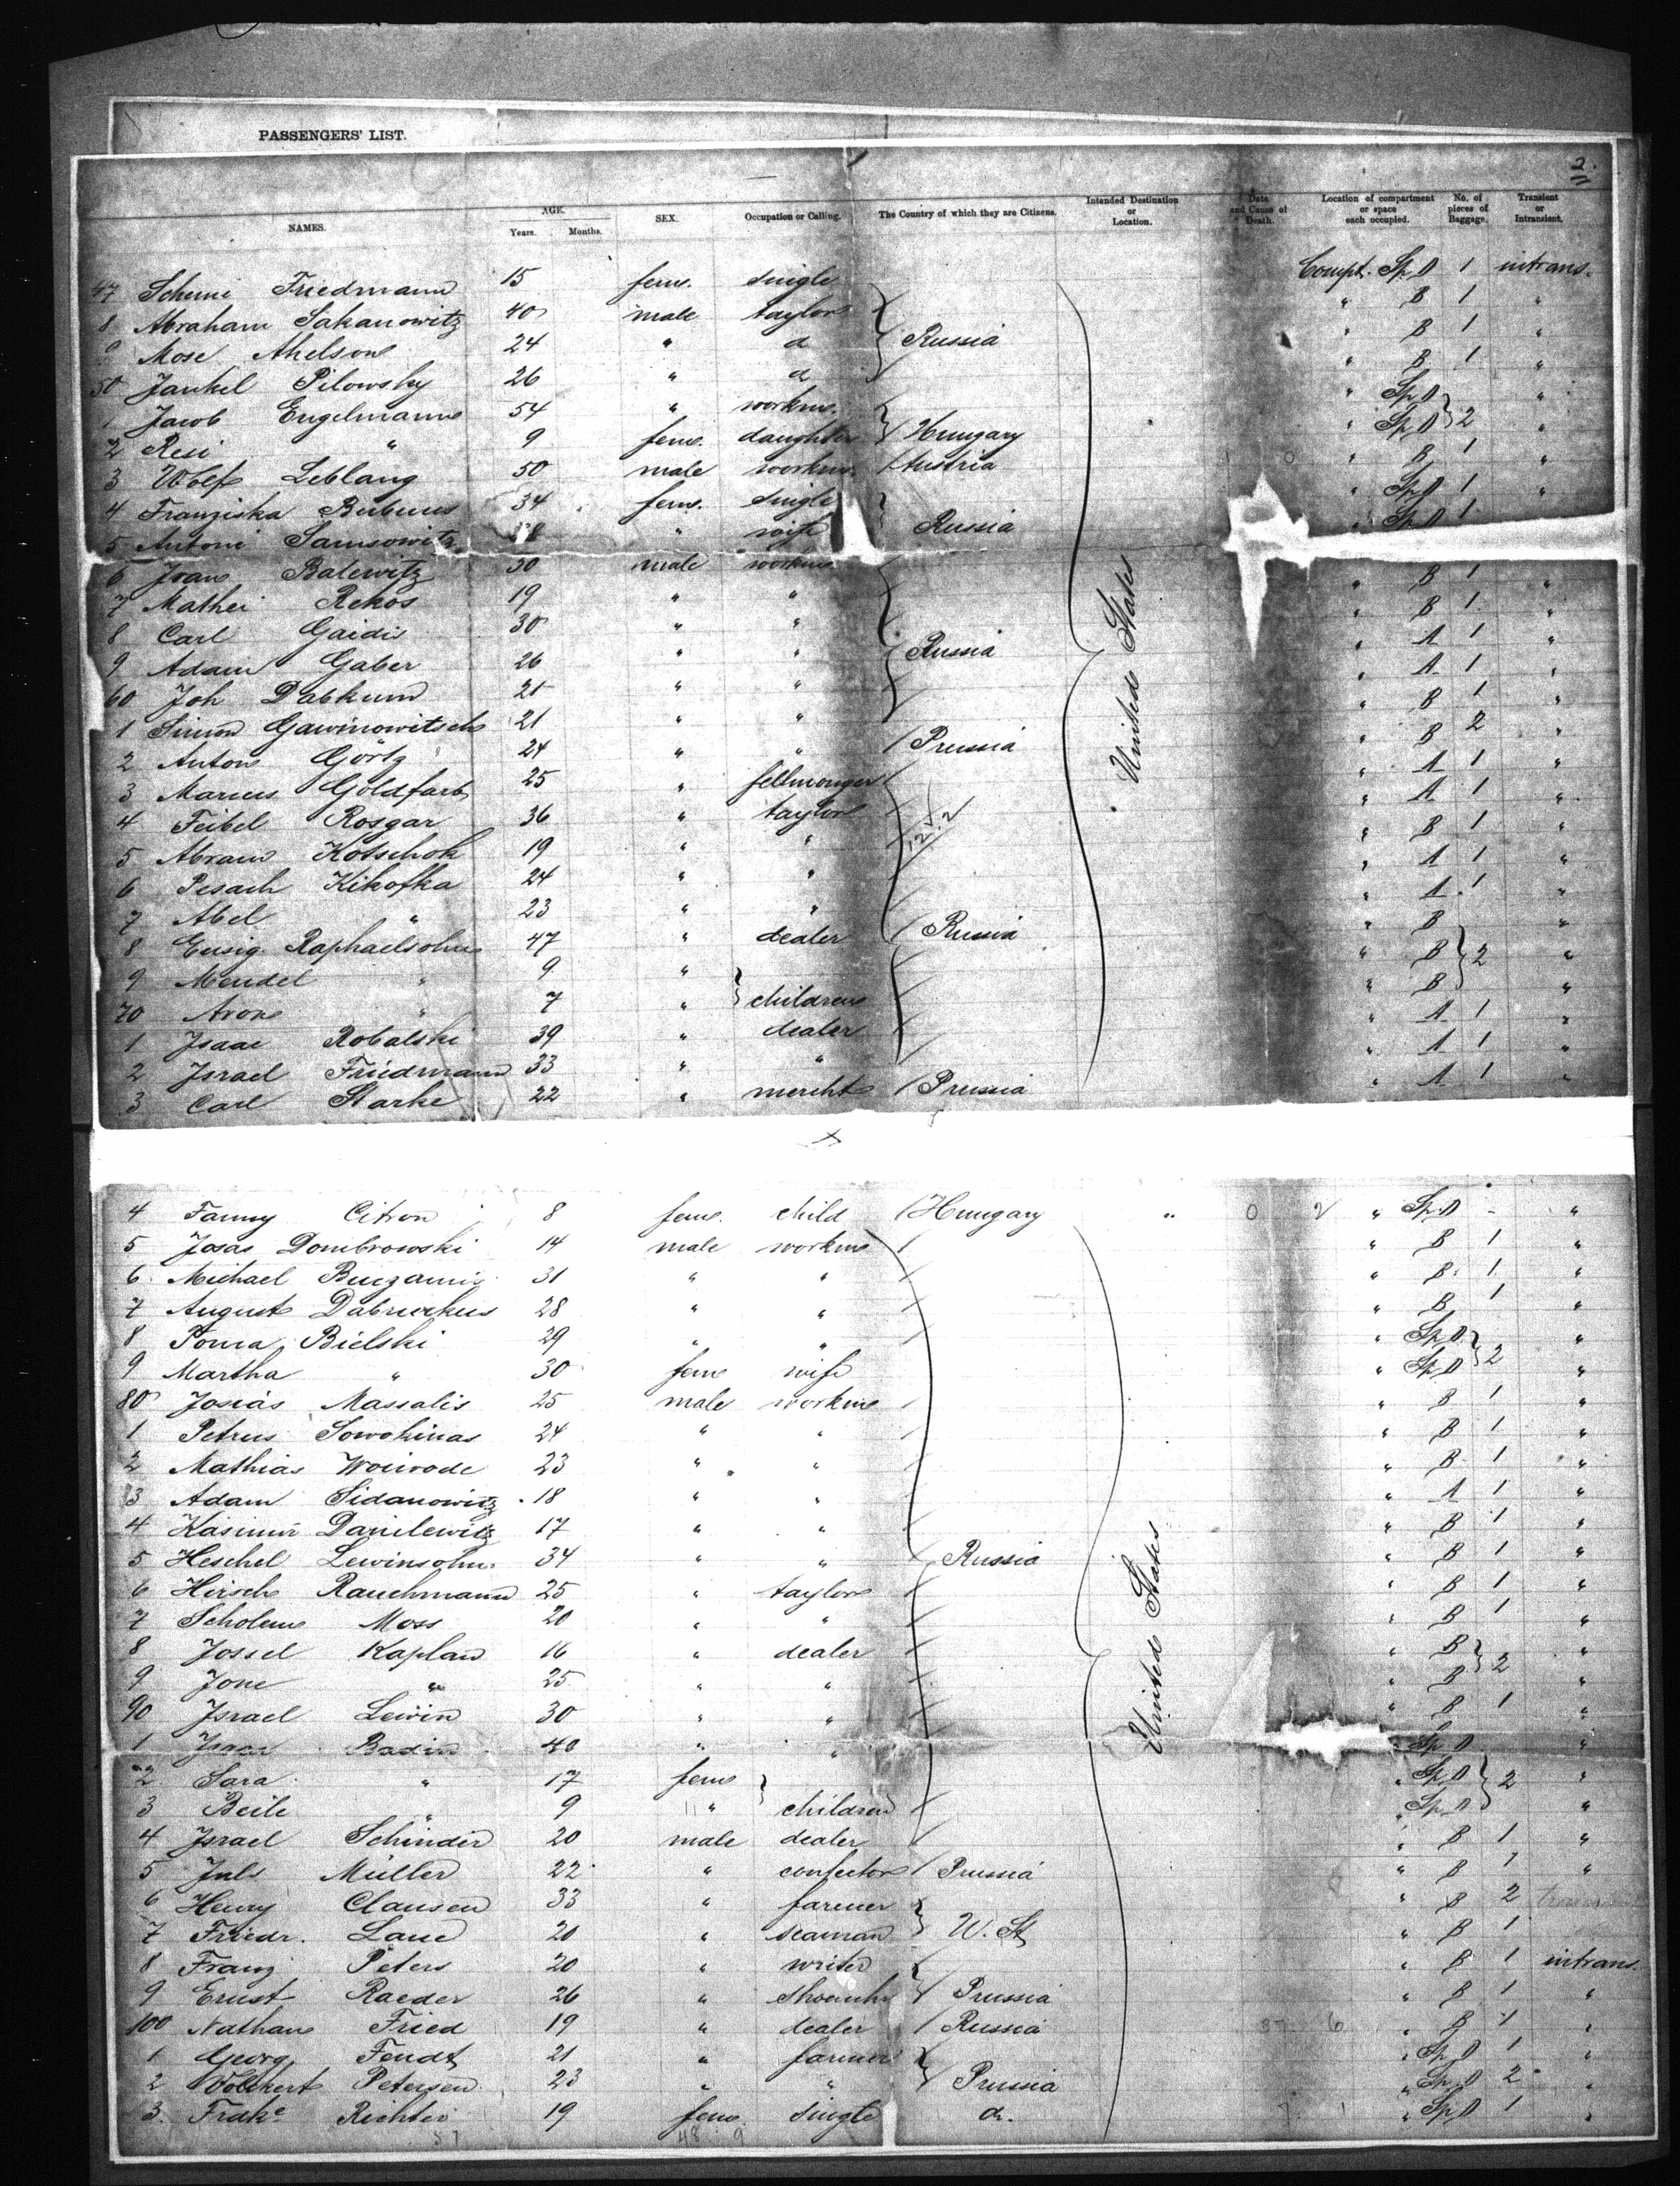 PASSENGERS' LIST.
2.
NAMES. AGE. Years. Months. SEX. Occupation or Calling. The Country of which they are Citizens. Intended Destination or Location. Date and Cause of Death. Location of compartment or space each occupied. No. of pieces of Baggage. Transient or Intransient.
47 Friedmann 15 fem. single Compt. Sp. D 1 intrans.
8 Abraham Sakanowitz 40 male taylor " B 1 "
9 Mose Abelson 24 " d Russia " B 1 "
50 Jankel Pilowsky 26 " d " B 1 "
1 Jacob Engelmann 54 " workm. " Sp. D "
2 Resi " 9 fem. daughter Hungary " Sp. D 2 "
3 Wolf Leblang 50 male workm. Austria " B 1 "
4 Franziska 34 fem. single " Sp. D 1 "
5 Antoni Samsowitz " wife Russia " Sp. D
6 Ivan Balewitz 30 male workm " B 1 "
7 Mathei Rekos 19 " " " B 1 "
8 Carl Gaidis 30 " " " A 1 "
9 Adam Gaber 26 " " Russia " A 1 "
60 Joh Dabkum 21 " " " B 1 "
1 Simon Gawinowitsch 21 " " " B 2 "
2 Anton Görtz 24 " " Prussia " A 1 "
3 Marcus Goldfarb 25 " fellmonger " A 1 "
4 Feibel Rosgar 36 " taylor " B 1 "
5 Abram Kotschok 19 " " " A 1 "
6 Pesach Kikofka 24 " " " A 1 "
7 Abel " 23 " " " B "
8 Eusig Raphaelsohn 47 " dealer Russia " B 2 "
9 Mendel " 9 " " B "
70 Aron " 7 " children " A 1 "
1 Isaac Robalski 39 " dealer " A 1 "
2 Israel Friedmann 33 " " " A 1 "
3 Carl Starke 22 " mercht Prussia
United States
4 Fanny Citron 8 fem. child Hungary " 0 2 " Sp. D - "
5 Josas Dombrowski 14 male workm " B 1 "
6 Michael 31 " " " B 1 "
7 August 28 " " " B 1 "
8 Toma Bielski 29 " " " Sp. D "
9 Martha " 30 fem wife " Sp. D 2 "
80 Josias Massalis 25 male workm " B 1 "
1 Petrus Sowokinas 24 " " " B 1 "
2 Mathias Woiwode 23 " " " B 1 "
3 Adam Sidanowitz 18 " " " A 1 "
4 Kasimir Danilewitz 17 " " " B 1 "
5 Heschel Lewinsohn 34 " " Russia " B 1 "
6 Hirsch Rauchmann 25 " taylor " B 1 "
7 Scholem Moss 20 " " " B 1 "
8 Jossel Kaplan 16 " dealer " B "
9 Jone " 25 " " " B 2 "
90 Israel Lewin 30 " " " B 1 "
1 Isaac Badin 40 " " Sp. D "
2 Sara " 17 fem " Sp. D 2 "
3 Beile " 9 " children " Sp. D "
4 Israel Schinder 20 male dealer " B 1 "
5 Juls Müller 22 " confector Prussia " B 1 "
6 Henry Clausen 33 " farmer " B 2
7 Friedr. Laue 20 " seaman W. St " B 1
8 Franz Peters 20 " writer " B 1 intrans.
9 Ernst Raeder 26 " Prussia " B 1 "
100 Nathan Fried 19 " dealer Russia " B 1 "
1 Georg Fendt 21 " farmer " Sp. D 1 "
2 Volkert Petersen 23 " " Prussia " Sp. D 2 "
3. Fridke Richter 19 fem. single d. " Sp. D 1 "
United States
48 9